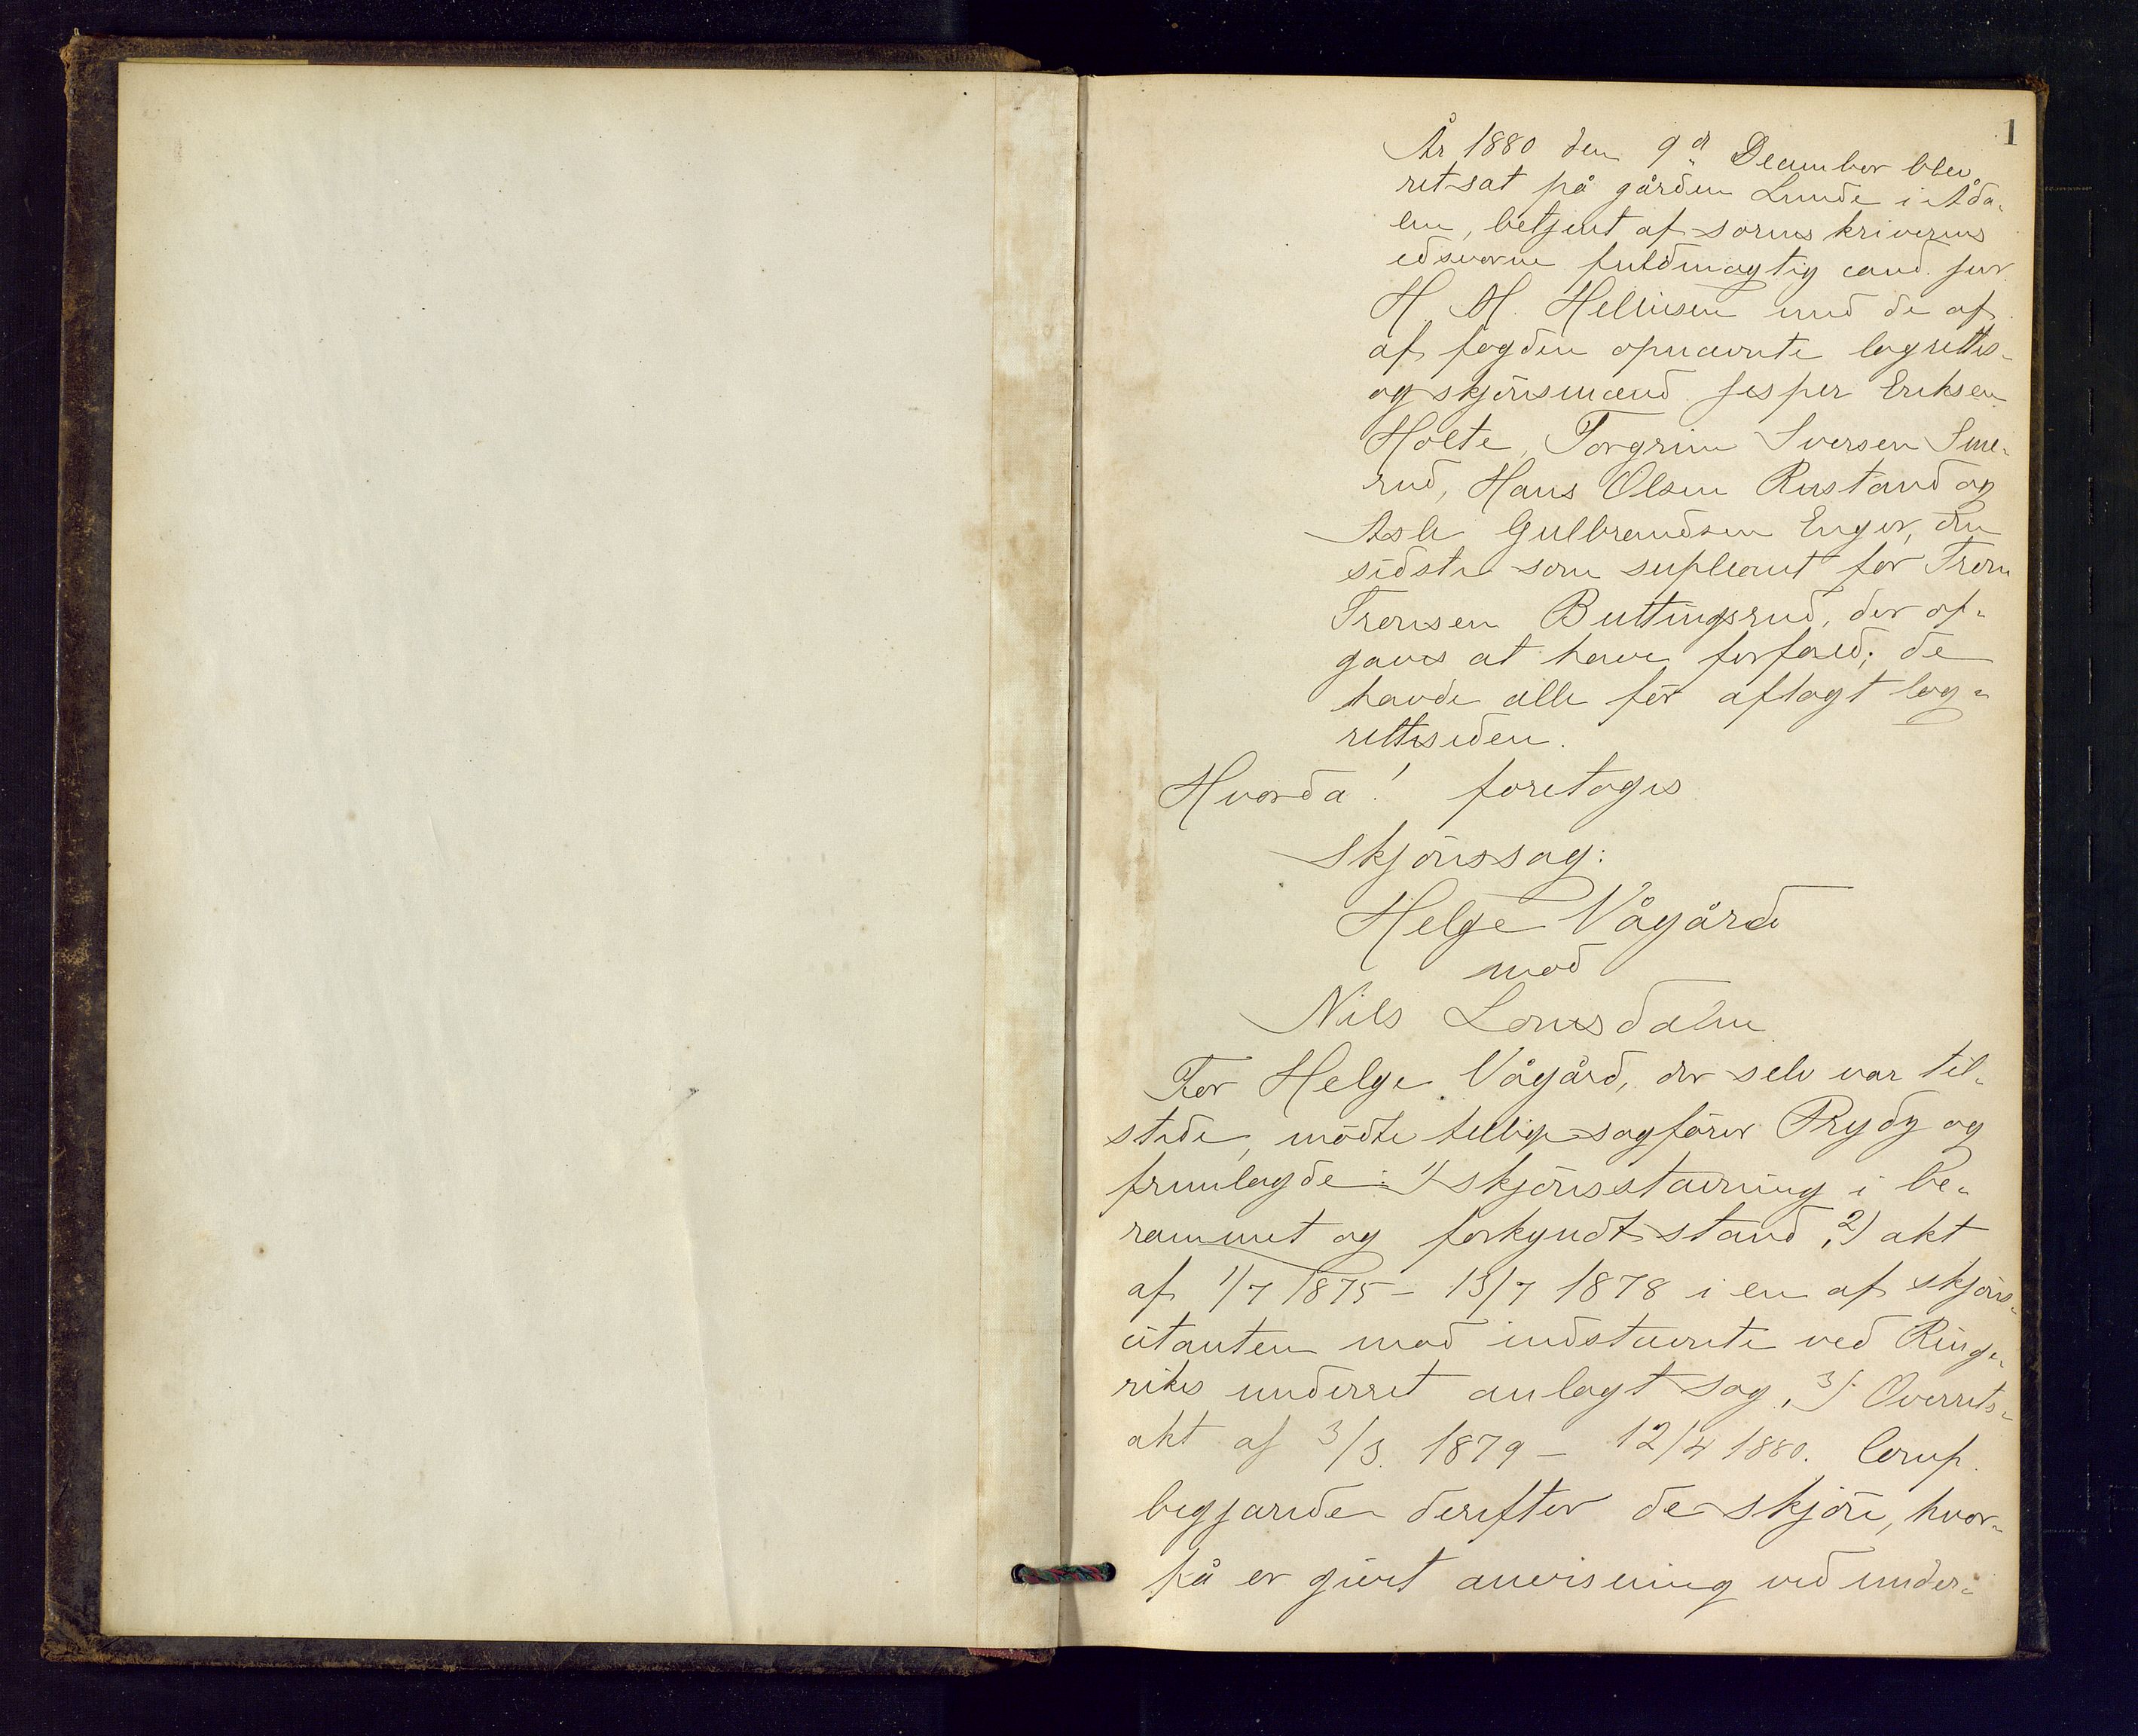 1
År 1880 den 9d December blev
ret sat på gården Lunde i Åda-
len, betjent af sorenskriverens
edsvorne fuldmægtig cand. jur.
H. M. Helliesen med de af
af fogden opnævnte lagrettes-
og skjönsmænd Jesper Eriksen
Holte, Torgrim Iversen Sme-
rud, Hans Olsen Rustand og
Asle Gulbrandsen Enger, den
sidste som supleant for Tron
Tronsen Buttingsrud, der op-
gaves at have forfald; de
havde alle för aflagt lag-
retteseden.
Hvorda! foretoges
skjönssag:
Helge Vågård
mod
Nils Lonsdalen
For Helge Vågård, der selv var til-
stede, mödte tellige sagförer Rydg og
fremlagde: 1) skjönsstævning i be-
rammet og forkyndt stand, 2) akt
af 1/7 1875 - 13/7 1878 i en af skjöns-
citanten mod indstævnte ved Ringe-
rikes underret anlagt sag, 3) Overrets-
akt af 3/3. 1879 - 12/4 1880. Comp.
begjærede derefter de skjön, hvor-
på er givet anvisning ved under-